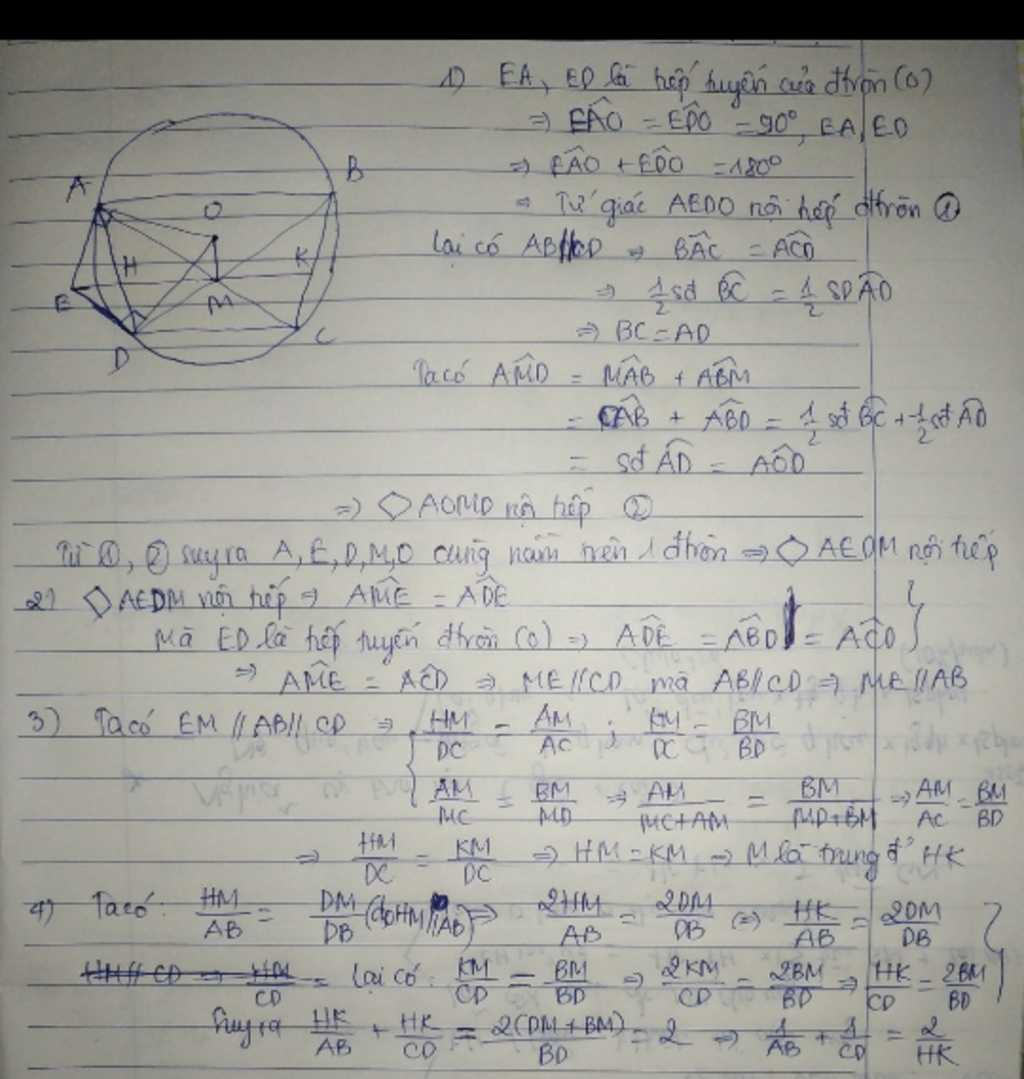 A
B
O
H
K
E
M
D
C
1) EA, ED là tiếp tuyến của đtròn (O)
⇒ \widehat{EAO} = \widehat{EDO} = 90°, EA, ED
⇒ \widehat{EAO} + \widehat{EDO} = 180°
⇒ Tứ giác AEDO nội tiếp đtròn ①
lại có AB//CD ⇒ \widehat{BAC} = \widehat{ACD}
⇒ 1/2 sđ \widehat{BC} = 1/2 SĐ \widehat{AD}
⇒ BC = AD
Ta có \widehat{AMD} = \widehat{MAB} + \widehat{ABM}
= \widehat{CAB} + \widehat{ABD} = 1/2 sđ \widehat{BC} + 1/2 sđ \widehat{AD}
= sđ \widehat{AD} = \widehat{AOD}
⇒ ◇AOMD nội tiếp ②
Từ ①, ② suy ra A, E, D, M, O cùng nằm trên 1 đtròn ⇒ ◇ AEDM nội tiếp
2) ◇AEDM nội tiếp ⇒ \widehat{AME} = \widehat{ADE}
Mà ED là tiếp tuyến đtròn (O) ⇒ \widehat{ADE} = \widehat{ABD} = \widehat{ACD} }
⇒ \widehat{AME} = \widehat{ACD} ⇒ ME//CD mà AB//CD ⇒ ME//AB
3) Ta có EM//AB//CD ⇒ { HM/DC = AM/AC ; KM/DC = BM/BD
AM/MC = BM/MD ⇒ AM/(MC+AM) = BM/(MD+BM) ⇒ AM/AC = BM/BD
⇒ HM/DC = KM/DC ⇒ HM = KM ⇒ M là trung đ' HK
4) Ta có: HM/AB = DM/DB (do HM//AB) ⇒ 2HM/AB = 2DM/DB ⇔ HK/AB = 2DM/DB }
HM//CD ⇒ HM/CD = lại có: KM/CD = BM/BD ⇒ 2KM/CD = 2BM/BD ⇒ HK/CD = 2BM/BD
Suy ra HK/AB + HK/CD = 2(DM+BM)/BD = 2 ⇒ 1/AB + 1/CD = 2/HK